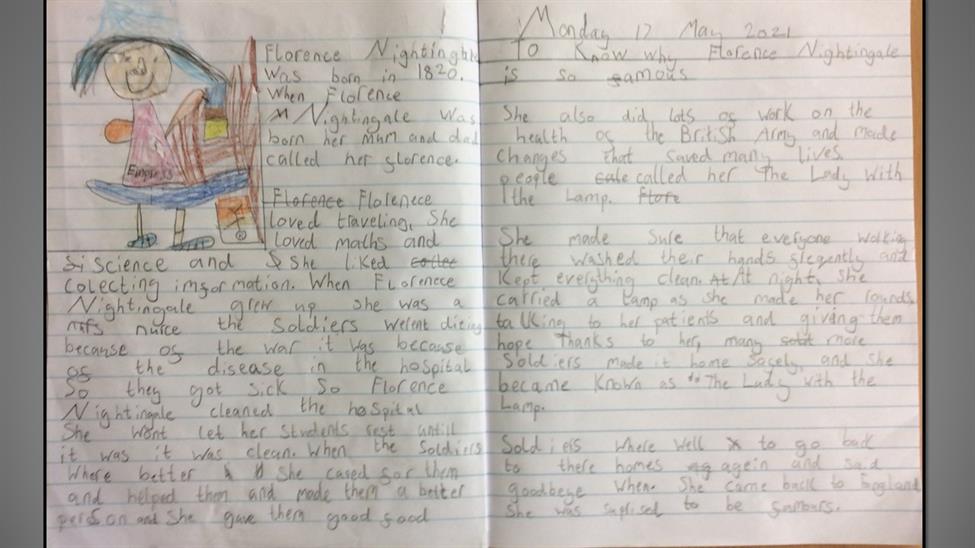 Florence Nightinghe
was born in 1820.
When Florence
Nightingale was
born her mum and dad
called her florence.
Empress
Florence Florenece
loved traveling. She
loved maths and
Science and She liked
colecting imformation. When Florenece
Nightingale grew up she was a
nurce the Soldiers werent dieing
because of the war it was because
of the disease in the hospital
So they got sick So Florence
Nightingale cleaned the hospital
She wont let her students rest untill
it was it was clean. when the Soldiers
Where better She cared for them
and helped them and made them a better
person and She gave them good food
Monday 17 May 2021
To Know why Florence Nightingale
is so famous
She also did lots of work on the
health of the British Army and made
changes that saved many lives.
people called her The Lady with
the Lamp. Flore
She made sure that everyone working
there washed their hands and
Kept everything clean. At At night, she
carried a lamp as she made her rounds,
talking to her patients and giving them
hope Thanks to her, many more
Soldiers made it home safely, and she
became known as "The Lady with the
Lamp.
Soldiers where well to go back
to there homes agein and said
goodbeye when. She came back to England
She was suprised to be famours.